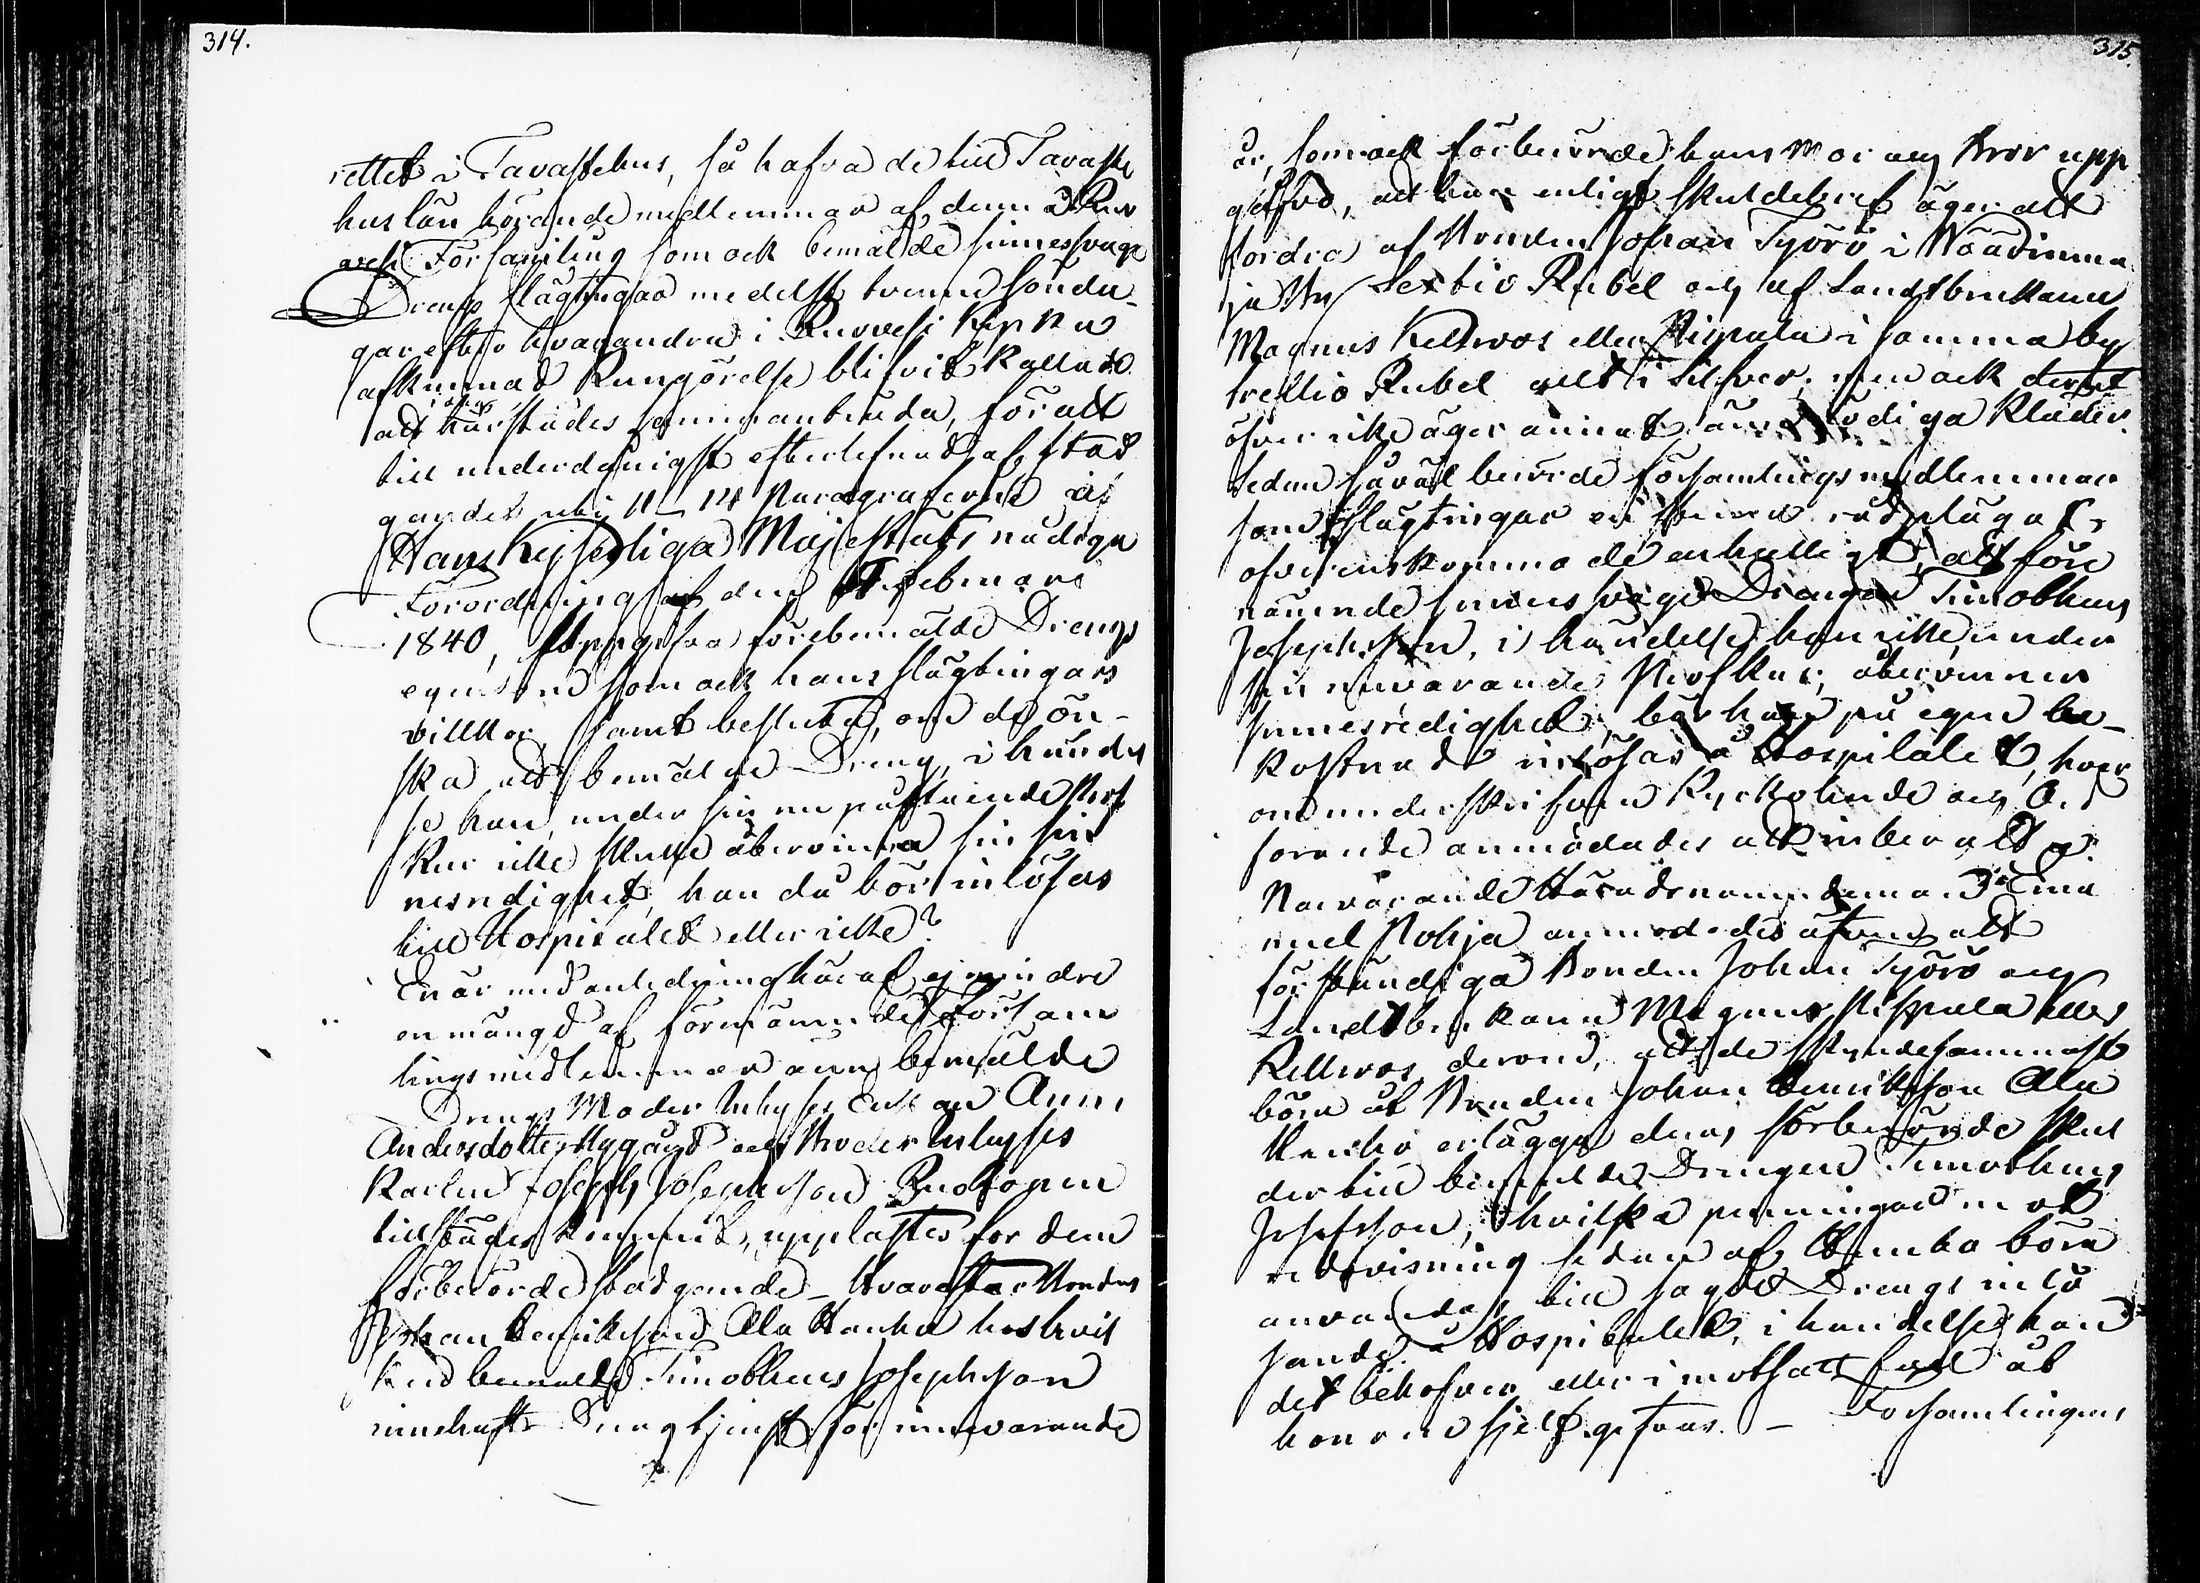 314.
rettet i Tavastehus, så hafva de till Tavaste
hus län hörande medlemmar af denna Ruo
vesi Församling som ock bemälde sinnessvage
Drengs slägtingar medelst tvenne sönda-
gar efter hvarandra i Ruovesi Kyrka
afkunnad Kungörelse blifvit kallade
att i dag härstädes sammanträda, för att
till underdånigst efterlefnad af stad
gandet uti 11 - 14 Paragraferne af
Hans Kejserliga Majestäts nådiga
Förordning af den Februari
1840, uppgifva förebemälde Drengs
egendom som ock hans slägtingars
villkor, samt besluta, om de ön-
ska att bemälde Dreng, i händel
se han, under sin nu påstående
Kur icke skulle återvinna sin sin
nesredighet, han då bör inlösas
till Hospitalet eller icke?
En är med anledning häraf ej mindre
en mängd af förenämnde Försam
lingsmedlemmar än bemälde
Drengs Moder Inhyses Enkan Anna
Andersdotter och Broder Inhyses
Karlen Joseph Josephsson
tillstädes kommit, upplästes för dem
förberörde stadgande - Hvarefter Bonden
Johan Henriksson Ala Hanka hos hvil
ken bemälde Timotheus Josephsson
innehaft Drengtjenst för innevarande
315.
år, som ock förberörde hans Mor och Bror upp
gåfvo, att han enligt skuldebref äger att
fordra af Bonden Johan Työrö i Wäärinma
ja By Sextio Rubel och af Landtbrukaren
Magnus Kellwos eller Pispala i samma by
trettio Rubel allt i Silfver, men ock derut
öfver icke äger annat än nödiga Kläder.
Sedan såväl berörde församlings medlemmar
som slägtingar en stund rådplägat,
öfverenskommo de enhälligt, att före
nämnde sinnessvage Drengen Timotheus
Josephsson, i händelse han icke under
sin nuvarande Kur, återvinner
sinnesredighet, bör han på egen be-
kostnad inlösas å Hospitalet, hvar
om underskrifven Kyrkoherde och Ord
förande anmodades att inberätta.
Närvarande Härads nämndeman
Pohja anmodades äfven att
förständiga Bonden Johan Työrö och
Landtbrukaren Magnus Pispala eller
Kellwos derom, att de skyndesammast
böra åt Bonden Johan Henriksson Ala
Hanka erlägga deras förberörde skul
der till bemälde Drengen Timotheus
Josefsson, hvilka penningar mot
redovisning sedan af Hanka böra
användas till sagde Drengs inlö
sande å Hospitalet, i händelse han
det behöfver eller i motsatt fall åt
honom sjelf gifvas. - Församlingens